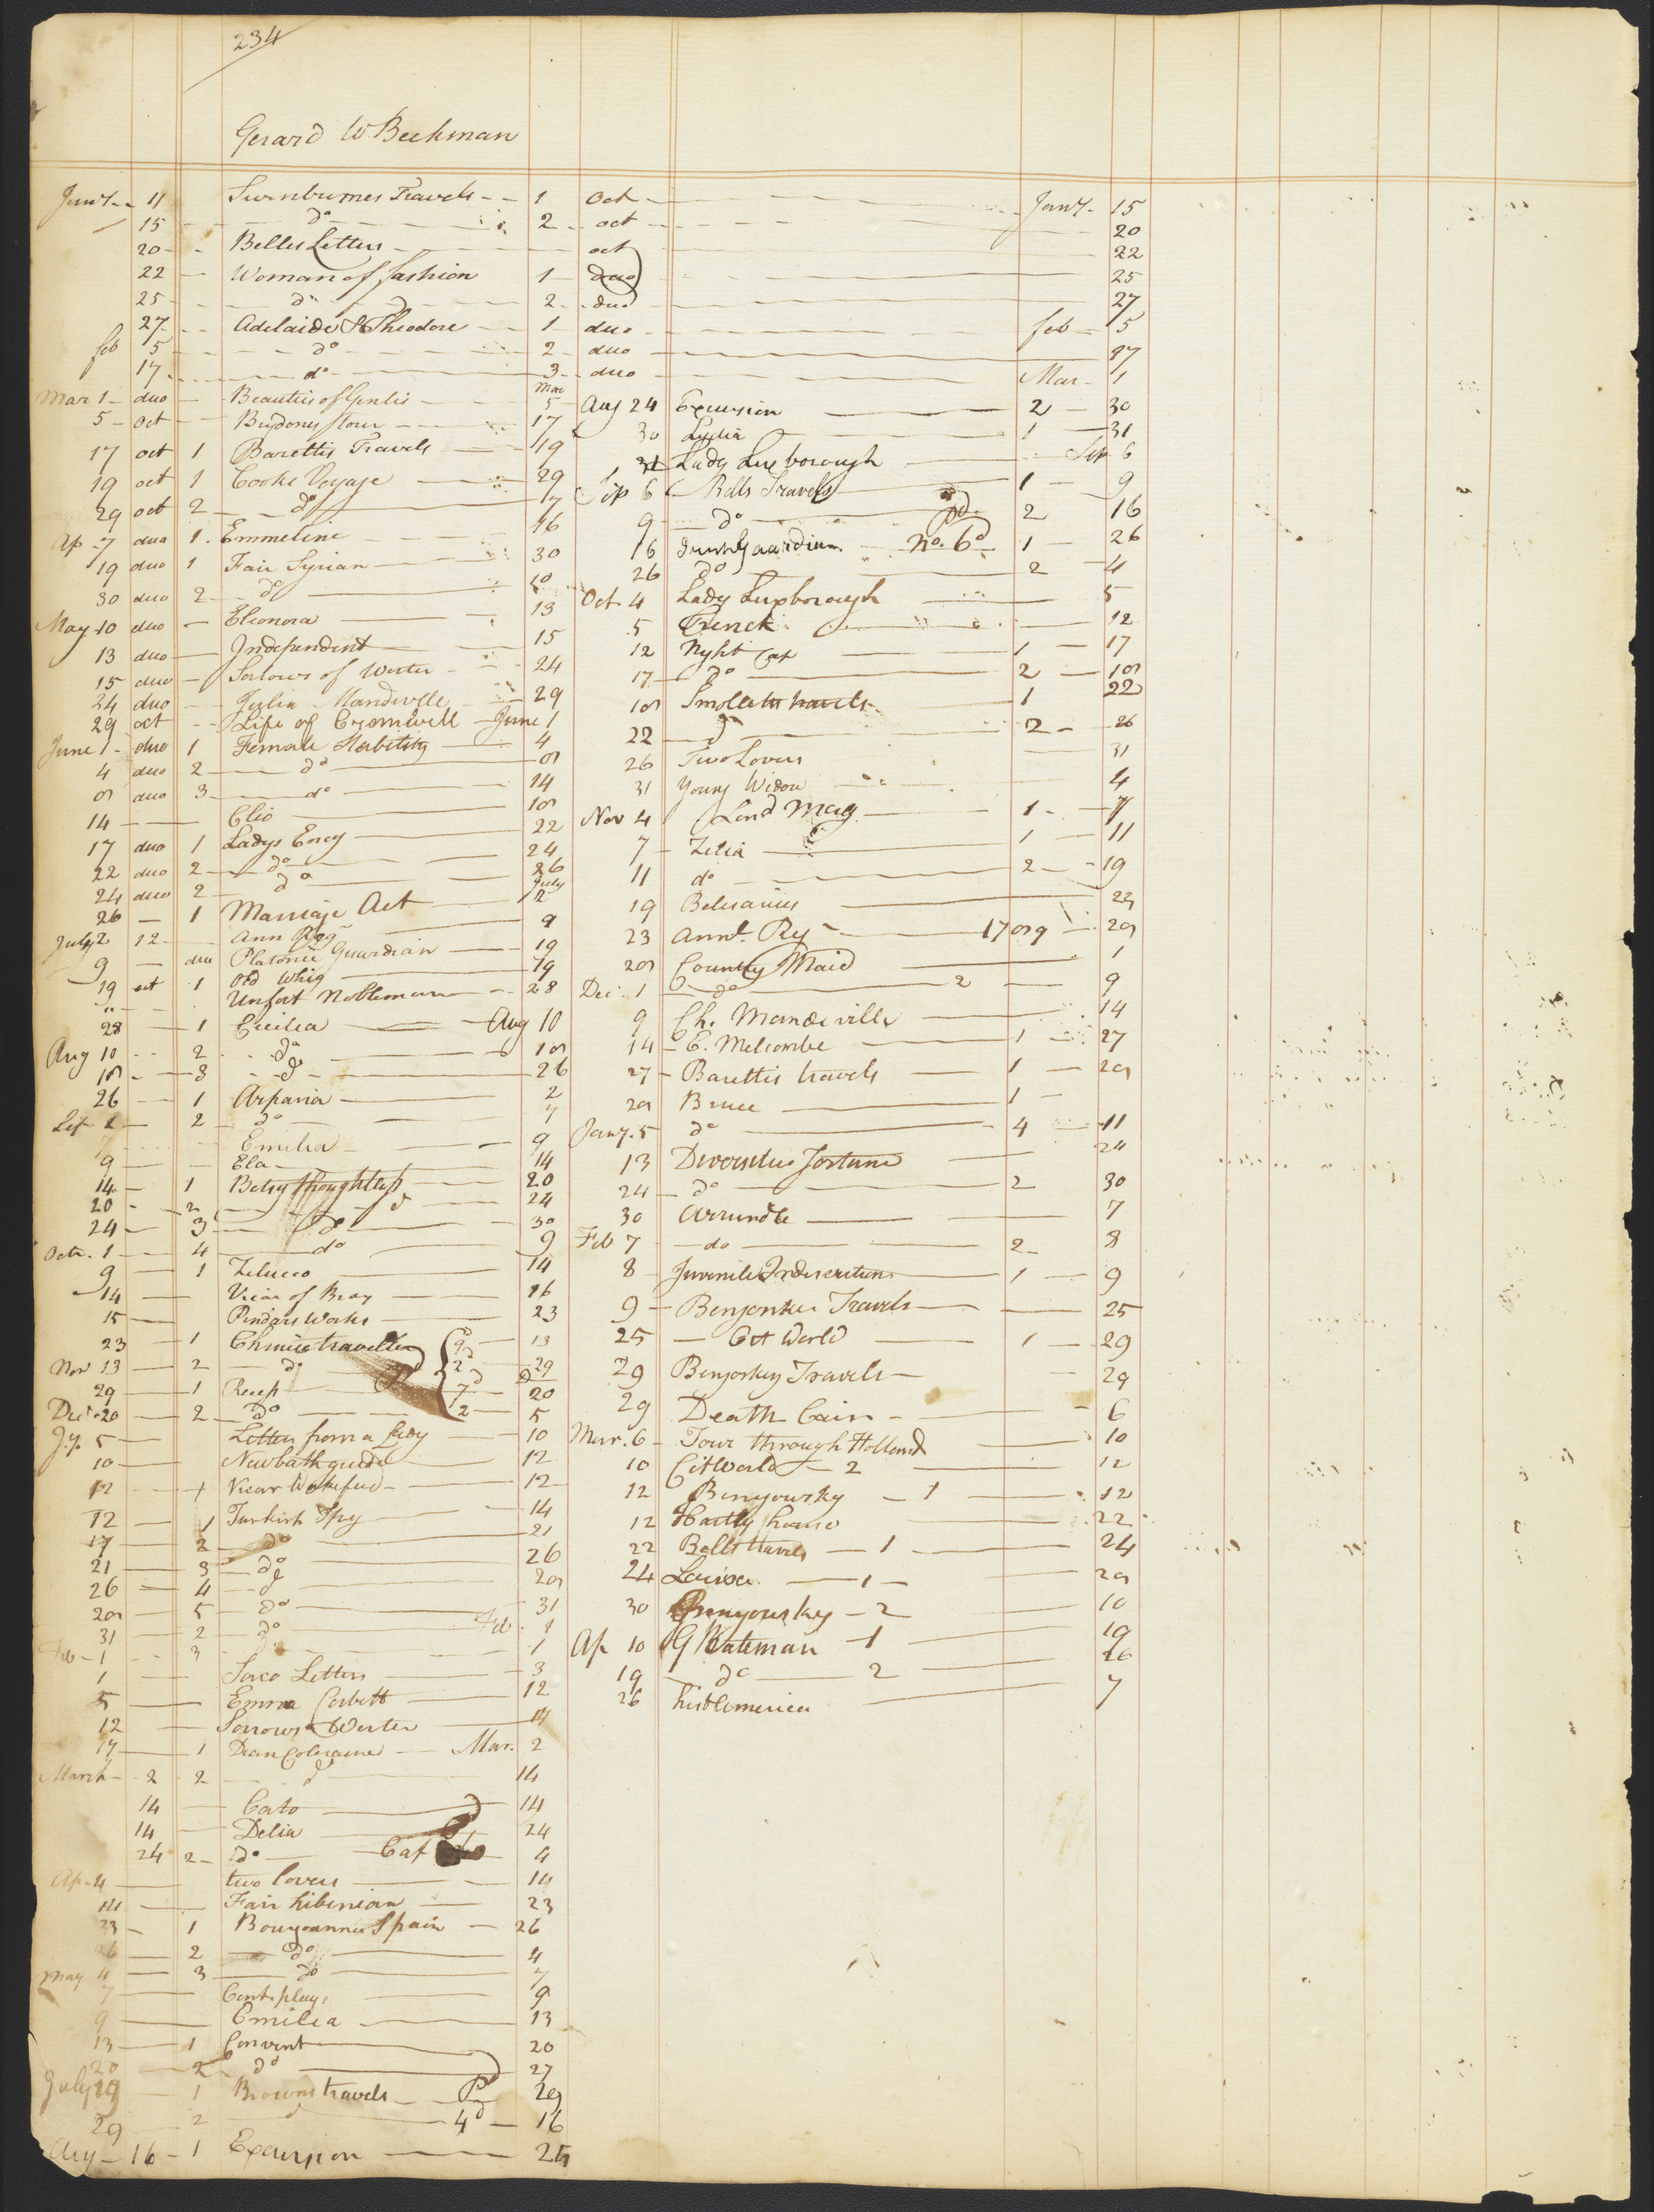 234
Gerard W Beekman
Jany 11 Swinburnes Travels 1 Oct Jany 15
15 do 2 oct 20
20 Belles Letters oct 22
22 Woman of fashion 1 duo 25
25 do 2 duo 27
27 Adelaide & Theodore 1 duo feb 5
feb 5 do 2 duo 17
17 do 3 duo Mar 1
Mar 1 duo Beauties of Genlis Mar 5
5 oct Brydones tour 17
17 oct 1 Barettis Travels 19
19 oct 1 Cooks Voyage 29
29 oct 2 do 7
Ap 7 duo 1 Emmeline 16
19 duo 1 Fair Syrian 30
30 duo 2 do 10
May 10 duo Eleonora 13
13 duo Independent 15
15 duo Sorlows of Werter 24
24 duo Julia Mandeville 29
29 oct Life of Cromwell June 1
June 1 duo 1 Female Stability 4
4 duo 2 do 8
8 duo 3 do 14
14 Clio 18
17 duo 1 Ladys Ency 22
22 duo 2 do 24
24 duo 2 do 26
26 1 Marriage Act July 2
July 2 12 Ann Reg 9
9 duo Platonic Guardian 19
19 oct 1 Old Whig 19
" Unfort Nobleman 28
28 1 Cecilia Aug 10
Aug 10 2 do 18
18 3 do 26
26 1 Arpasia 2
Sep 2 2 do 7
7 Emilia 9
9 Ela 14
14 1 Betsy thoughtless 20
20 2 do 24
24 3 do 30
Octr. 1 4 do 9
9 1 Zelucco 14
14 Vicar of Bray 16
15 Pindars Works 23
23 1 Chinise traveller 13
Nov 13 2 do 29
29 1 Recess 20
Decr 20 2 do 5
Jy. 5 Letters from a Lady 10
10 New bath guide 12
12 1 Vicar Wakefield 12
12 1 Turkish Spy 14
17 2 do 21
21 3 do 26
26 4 do 28
28 5 do 31
31 2 do Feb 1
Feb 1 3 1
1 Sorco Letters 3
5 Emma Corbett 12
12 Sorrows Werter 17
17 1 Dean Coleraine Mar. 2
March 2 2 do 14
14 Cato 14
14 Delia 24
24 2 do Cat 4
Ap 4 two lovers 14
14 Fair hibernian 23
23 1 Bourgoannes Spain 26
26 2 do 4
May 4 3 do 7
7 Cent. plays 9
9 Emilea 13
13 1 Convent 20
20 2 do 27
July 19 1 Browns travels Pd 29
29 2 do 4d 16
Aug 16 1 Excursion 24
Aug 24 Excursion 2 30
30 Lydia 1 31
31 Lady Luxborough Sep 6
Sep 6 Bells Travels 1 9
9 do 2 16
16 Irish Guardian No. 6d 1 26
26 do 2 4
Oct. 4 Lady Luxborough 5
5 Trenck 12
12 Nyht Cap 1 17
17 do 2 18
18 Smolletts travels 1 22
22 do 2 26
26 Two Lovers 31
31 Young Widow 4
Nov 4 Lond Mag 1 7
7 Zelia 1 11
11 do 2 19
19 Belisarius 23
23 Annl. Reg 1789 28
28 Country Maid 1
Dec. 1 do 2 9
9 Ch. Mandeville 14
14 E. Melcombe 1 27
27 Barettis travels 1 28
28 Bruce 1
Jany. 5 do 4 11
13 Diversitus fortune 24
24 do 2 30
30 Arrundle 7
Feb 7 do 2 8
8 Juvenile Indiscretions 1 9
9 Benjonkes Travels 25
25 Cit World 1 29
29 Benjoskey Travels 29
29 Death Cain 6
Mar. 6 Tour through Holland 10
10 Cit World 2 12
12 Benyowsky 1 12
12 Hartly house 22
22 Bells travels 1 24
24 Louisa. 1 28
30 Benyousky 2 10
Ap 10 G Bateman 1 19
19 do 2 26
26 hist America 7